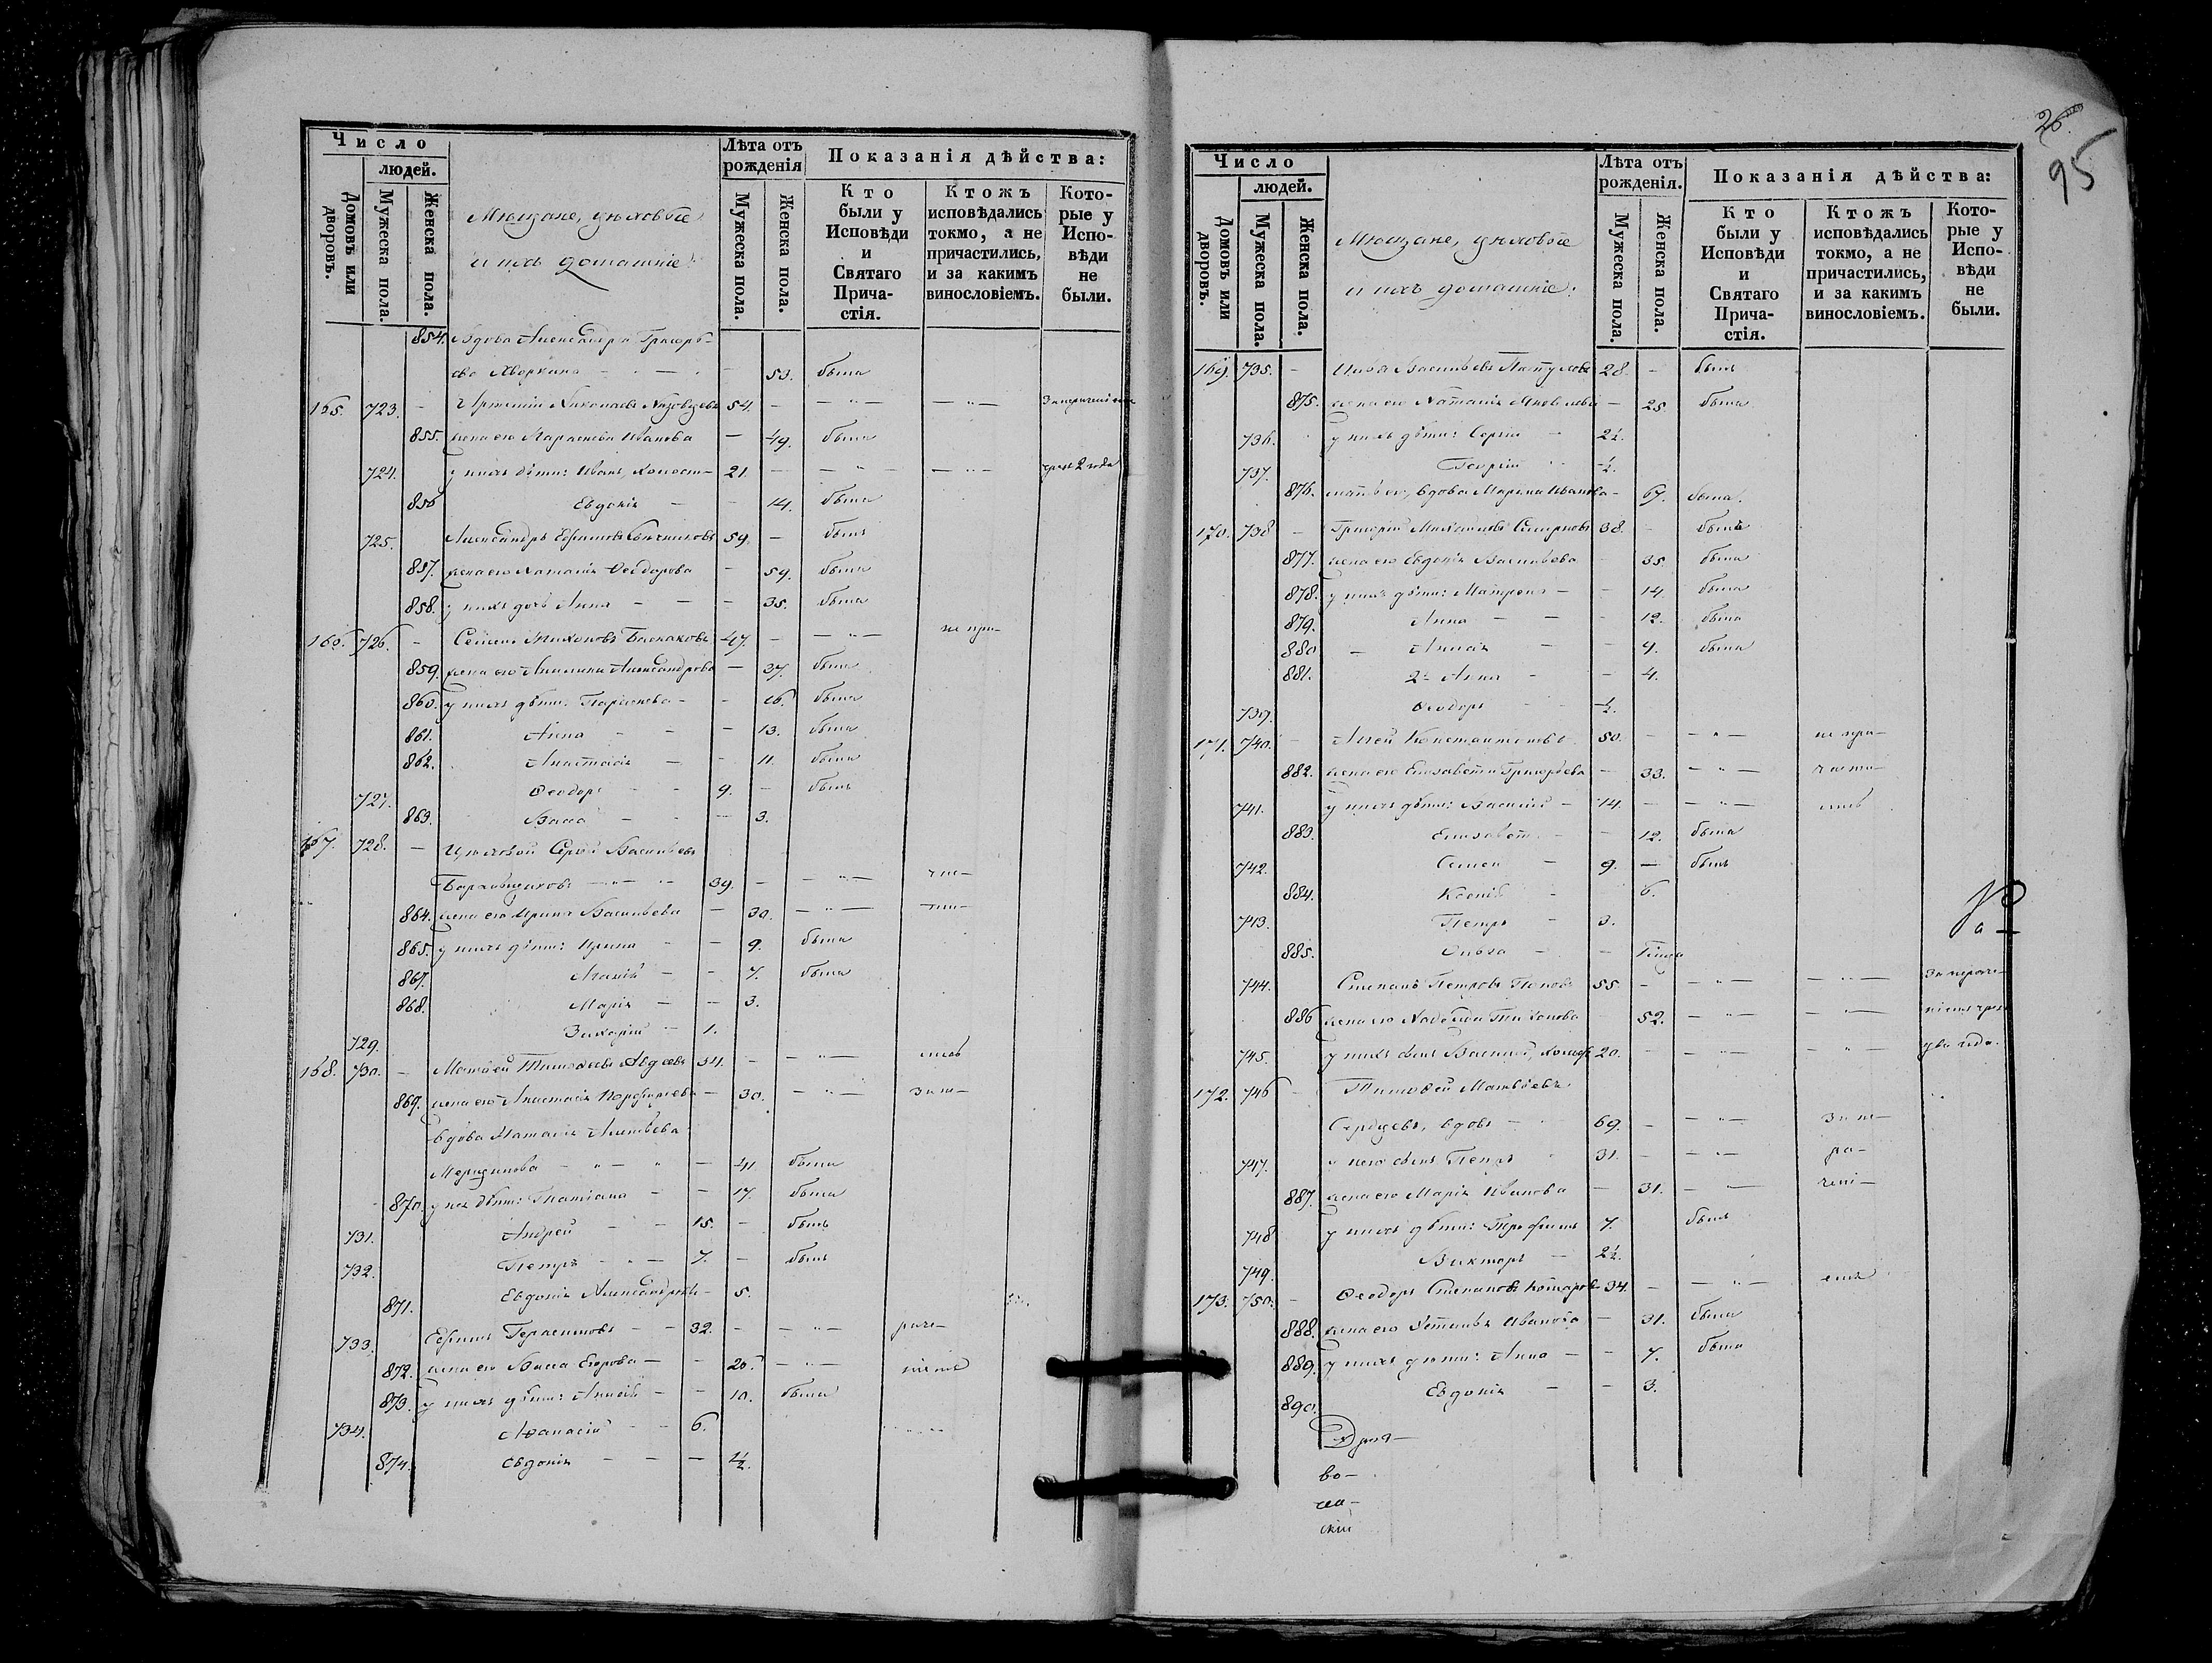 Число
людей.
Домовъ или дворовъ.
Мужеска пола.
Женска пола.
Мещане, цеховые
и ихъ домашніе:
Лѣта отъ рожденія
Мужеска пола.
Женска пола.
Показанія дѣйства:
Кто были у Исповѣди и Святаго Причастія.
Ктожъ исповѣдались токмо, а не причастились, и за какимъ винословіемъ.
Которые у Исповѣди не были.
854. вдова Александра Григорь-
ева 53. была
165. 723. - Николаевъ 54. - - „ - - „ -
855. жена его Ивановна - 49. была
724. у нихъ дѣти: Иванъ, холост- 21. - - „ - - „ - 2 года
856 Евдокія - 14. была
725. Александръ Ефимовъ 59. - былъ
857. жена его Наталія Ѳеодорова - 59. была
858. у нихъ дочь Анна - - - 35. была
166. 726. - Семенъ 47. - - „ - не при-
859. жена его Александрова - 37. была
860. у нихъ дѣти: Парасковія - - 16. была
861. Анна - - - 13. была
862. Анастасія - - 11. была
727. Ѳеодоръ - - 9. - былъ
863. Васса - - - 3.
167. 728. - Цеховой Сергей Васильевъ
39. - - „ - час-
864. жена его Ирина Васильева - 30. - „ - ти-
865. у нихъ дѣти: Ирина - - 9. была
867. - - 7. была
868. Марія - - 3.
729. Захарій - 1.
168. 730. - Матвей Тимофеевъ Авдеевъ 34. - - „ - лись
869. жена его Анастасія Порфирьева - 30. - „ - за не-
вдова Наталія
- „ - „ - 41. была
870. у нея дѣти: Татіана - - 17. была
731. Андрей - - 15. - былъ
732. Петръ - „ - 7. - былъ
871. Евдокія Александрова - 5.
733. Ефимъ Герасимовъ - - 32. - - „ - раче-
872. жена его Васса Егорова - - 20. - „ - ніемъ
873. у нихъ дѣти: - - 10. была
734. Аѳанасій - - 6.
874. Евдокія - - - ½.
26.
95
Число
людей.
Домовъ или дворовъ.
Мужеска пола.
Женска пола.
Мещане, цеховые
и ихъ домашніе:
Лѣта отъ рожденія.
Мужеска пола.
Женска пола.
Показанія дѣйства:
Кто были у Исповѣди и Святаго Причастія.
Ктожъ исповѣдались токмо, а не причастились, и за какимъ винословіемъ.
Которые у Исповѣди не были.
169. 735. - Васильевъ 28. - былъ
875. жена его Наталія Яковлева - 25. была
736. у нихъ дѣти: Сергій - 2½.
737. Георгій ½.
876. мать его, вдова Марина Иванова - 67. была.
170. 738 - Григорій Михаиловъ Смирновъ 38. - былъ
877. жена его Евдокія Васильева 35. была
878. у нихъ дѣти: Матрона - - 14. была
879. Анна - - - 12. была
880 - - - 9. была
881. 2я Анна - - 4.
739. Ѳеодоръ - - ½.
171. 740. - Константиновъ 50. - - „ - не при-
882. жена его Елизавета Григорьева - 33. - „ - части-
741. у нихъ дѣти: Василій - 14. - - „ - лись
883. Елизавета - - 12. была
742. Семен - 9. - былъ
884. Ксенія - 6.
743. Петръ - 3.
885. Ольга - - 1 года
744. Степанъ Петровъ Поповъ 55. - - „ - - „ - За нераче-
886 жена его Надежда Тихонова 52. - „ - - „ - ніемъ
745. у нихъ сынъ Василій, холост 20. - - „ - - „ - два года.
172. 746 - Тимофей Матвѣевъ
Сердцевъ, вдовъ - 69. - - „ - за не-
747. у него сынъ Петръ 31. - - „ - ра-
887. жена его Марія Иванова - 31. - „ - чені-
748 у нихъ дѣти: Трофимъ 7. былъ
749. Викторъ - 2½.
173. 750. - Ѳеодоръ Степановъ Комаровъ 34. - - „ - емъ
888. жена его Устинія Иванова - 31. была
889. у нихъ дѣти: Анна - - 7. была
890. Евдокія - - 3.